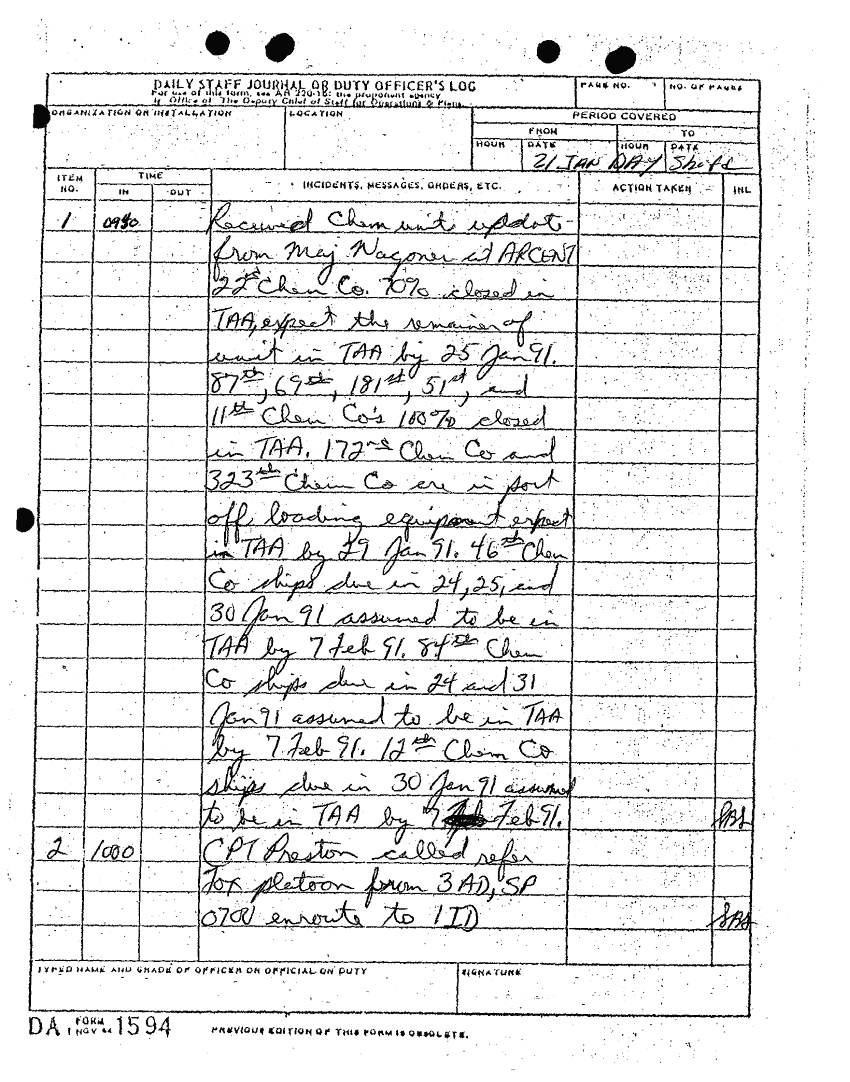 DAILY STAFF JOURNAL OR DUTY OFFICER'S LOG
PAGE NO.
NO. OF PAGES
For use of this form, see AR 220-15; the proponent agency
is Office of The Deputy Chief of Staff for Operations & Plans.
ORGANIZATION OR INSTALLATION
LOCATION
PERIOD COVERED
FROM
TO
HOUR
DATE
HOUR
DATE
21 JAN DAY Shift
ITEM NO.
TIME
IN
OUT
INCIDENTS, MESSAGES, ORDERS, ETC.
ACTION TAKEN
INL
1 Received Chem unit update
from Maj Wagoner at ARCENT
22nd Chem Co. 70% closed in
TAA, expect the remainer of
unit in TAA by 25 Jan 91.
87th, 69th, 181st, 51st, and
11th Chem Co's 100% closed
in TAA. 172nd Chem Co and
323th Chem Co are in port
off loading equipment expect
in TAA by 29 Jan 91. 46th Chem
Co ships due in 24, 25, and
30 Jan 91 assumed to be in
TAA by 7 Feb 91. 84th Chem
Co ships due in 24 and 31
Jan 91 assumed to be in TAA
by 7 Feb 91. 12th Chem Co
ships due in 30 Jan 91 assumed
to be in TAA by 7 Feb 91.
2 1000 CPT Preston called refer
Fox platoon from 3 AD, SP
enroute to 1 ID
TYPED NAME AND GRADE OF OFFICER OR OFFICIAL ON DUTY
SIGNATURE
DA FORM 1 NOV 1594
PREVIOUS EDITION OF THIS FORM IS OBSOLETE.